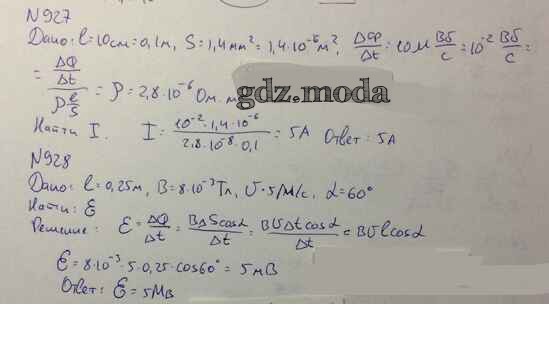 N927
Дано: l=10см=0,1м, S=1,4мм²=1,4·10⁻⁶м², ΔФ/Δt=10мВб/с=10⁻²Вб/с=
= (ΔФ/Δt)/(ρ l/S) = ρ=2,8·10⁻⁶ Ом·м
gdz.moda
Найти I. I = (10⁻²·1,4·10⁻⁶)/(2,8·10⁻⁸·0,1) = 5А Ответ: 5А
N928
Дано: l=0,25м, B=8·10⁻³Тл, υ·5/м/с, α=60°
Найти: ε
Решение: ε=ΔФ/Δt=BΔScosα/Δt=BυΔtcosα/Δt=Bυlcosα
ε=8·10⁻³·5·0,25·cos60°=5мВ
Ответ: ε=5Мв